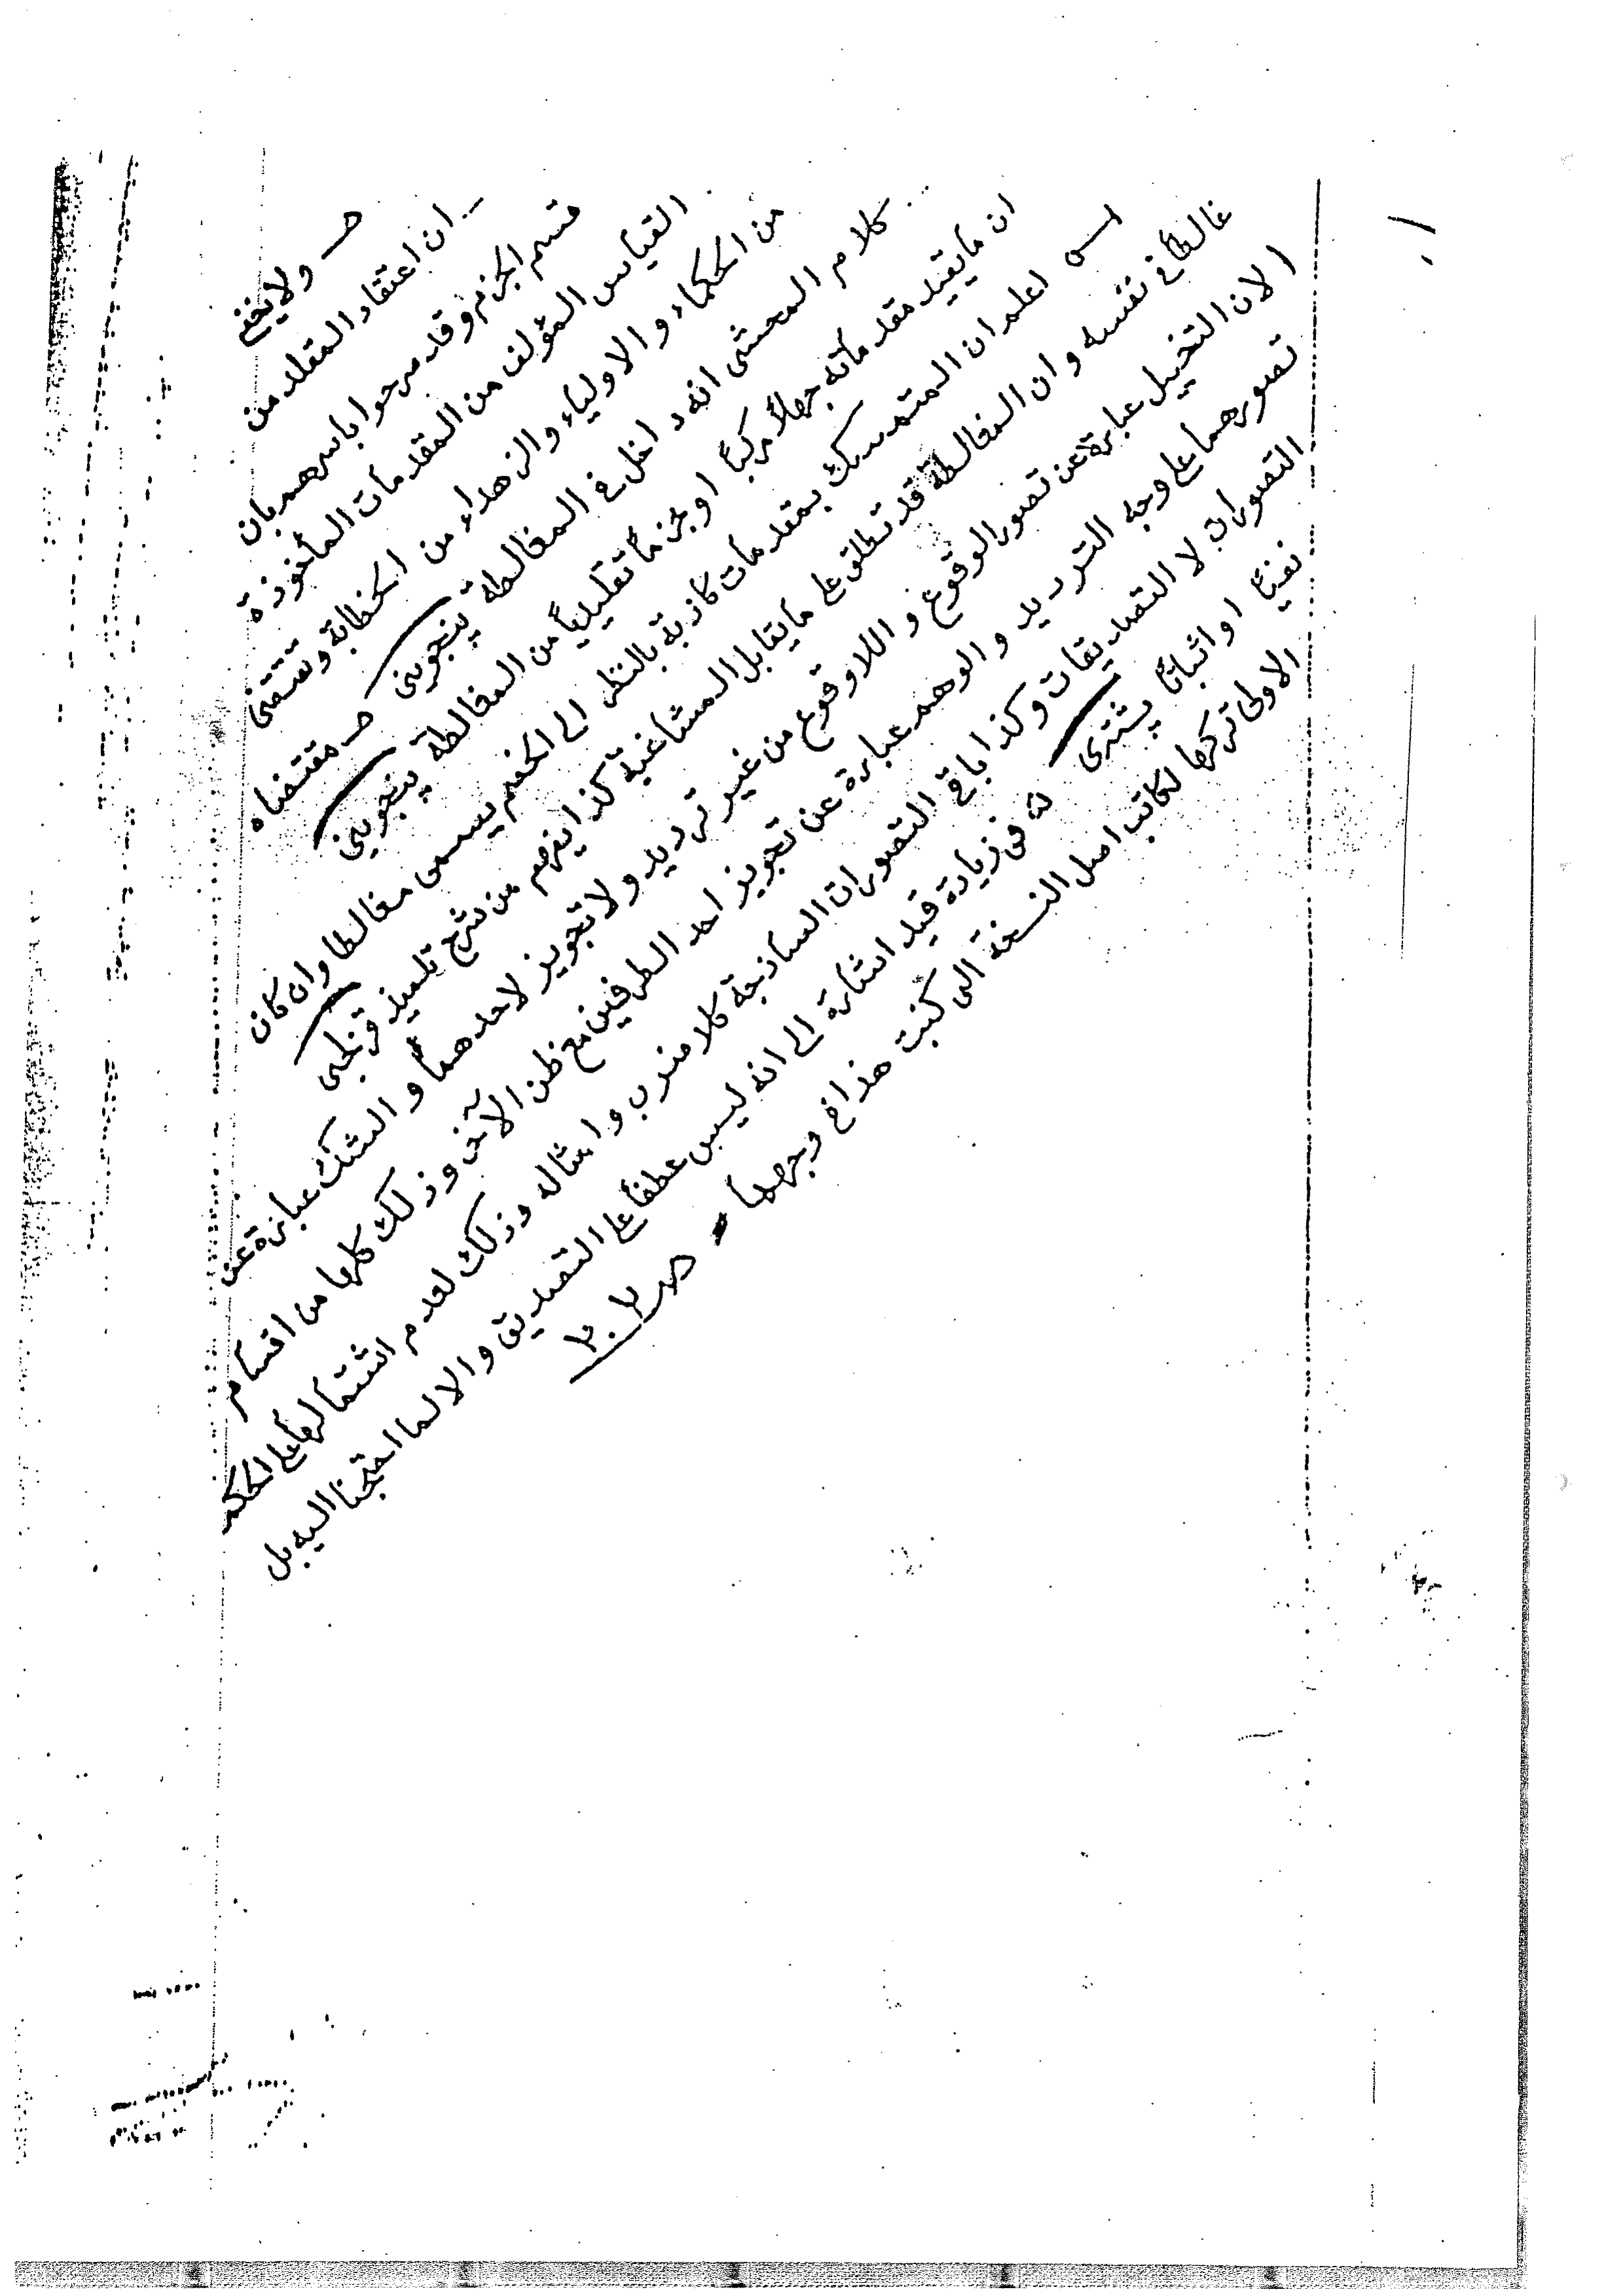 حـ ولا يخفى
ان اعتقاد المقلد من
قسم الجزم وقد صرحوا باسرهم بان
القياس المؤلف من المقدمات المأخوذة
من الحكماء والاولياء والزهداء من الخطابة وتقتضى
كلام المحشى انه داخل فى المغالطة ينجوينى حـ مقتضاه
ان ما يفيد مقدماته جهلاً مركبًا او جزمًا تقليديًا من المغالطة ينجوينى
اعلم ان المتمسك بمقدمات كاذبة بالنظر الى الخصم يسمى مغالطا وان كان
غالطًا فى نفسه وان المغالطة قد تطلق على ما يقابل المشاغبة كذا يفهم من شرح تلميذ قزلجى
الان التخييل عبارة عن تصور الوقوع و اللاوقوع من غير ترديد ولا تجويز لاحدهما و الشك عبارة عن
تصورهما على وجه الترديد و الوهم عبارة عن تجويز احد الطرفين مع ظن الآخر وذلك كلها من اقسام
التصورات لا التصديقات وكذا باقى التصورات الساذجة كلا مندب وامثاله وذلك لعدم اشتمالها على الحكم
نفيًا او اثباتًا پشتدى فى زيادة قيد اشارة الى انه ليس عطفا على التصديق والا لما احتجنا اليه بل
الاولى تركها لكاتب اصل النسخة الى كتبت هذا فى وجهها صـ ٢٠٢